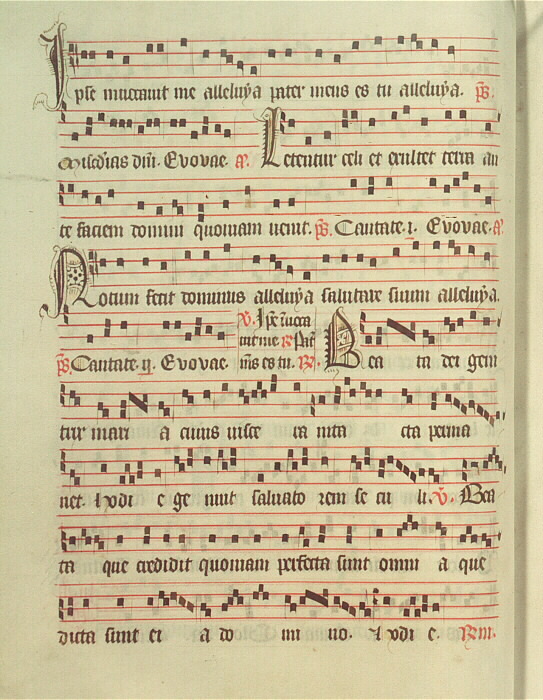 Ipse inuocauit me alleluya pater meus es tu alleluya. ps.
Misericordias dñi. Evovae. a. Letentur celi et exultet terra an
te faciem domini quoniam uenit. ps. Cantate. i. Evovae. a.
Notum fecit dominus alleluya salutare suum alleluya.
ps. Cantate. ii. Evovae. V. Ipse inuoca
uit me. R. Pater
meus es tu. R. Bea ta dei geni
trix mari a cuius uisce ra inta cta perma
net. Hodi e ge nuit saluato rem se cu li. V. Bea
ta que credidit quoniam perfecta sunt omni a que
dicta sunt ei a do mi no. Hodi e.